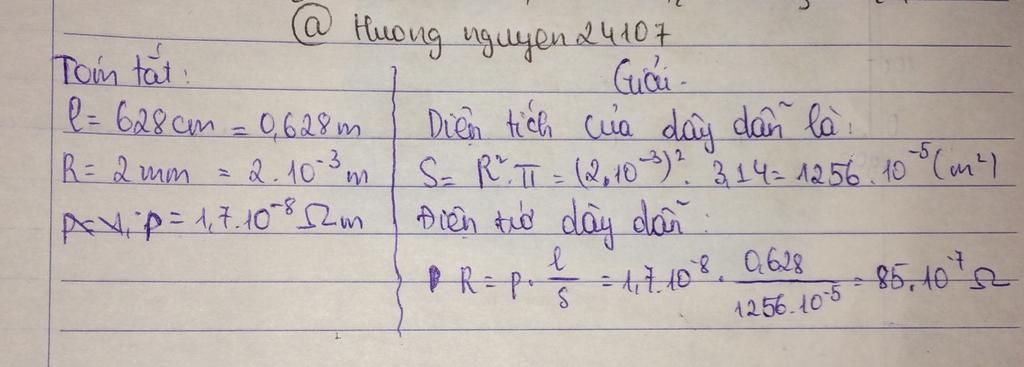 @ Huong nguyen 24107
Tóm tắt:
l = 628 cm = 0,628 m
R = 2 mm = 2.10⁻³ m
ρ = 1,7.10⁻⁸ Ωm
Giải.
Diện tích của dây dẫn là:
S = R².π = (2.10⁻³)². 3,14 = 1256.10⁻⁵ (m²)
Điện trở dây dẫn:
R = ρ. l/S = 1,7.10⁻⁸ . 0,628/1256.10⁻⁵ = 85.10⁻⁷ Ω